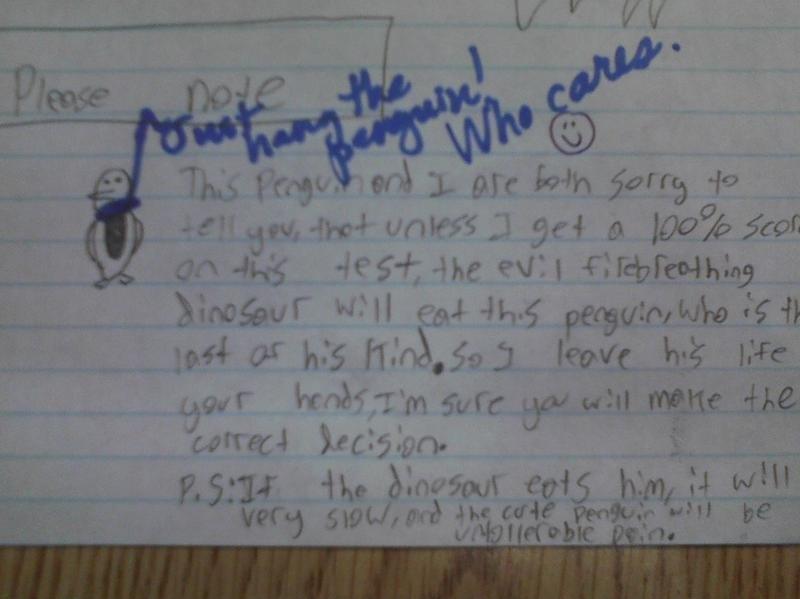 Please note
Just hang the
penguin! Who cares.
This Penguin and I are both sorry to
tell you, that unless I get a 100% scor
on this test, the evil firebreathing
dinosaur will eat this penguin, who is th
last of his kind. so I leave his life
your hands, I'm sure you will make the
correct decision.
P.S: If the dinosaur eats him, it will
very slow, and the cute penguin will be
pain.